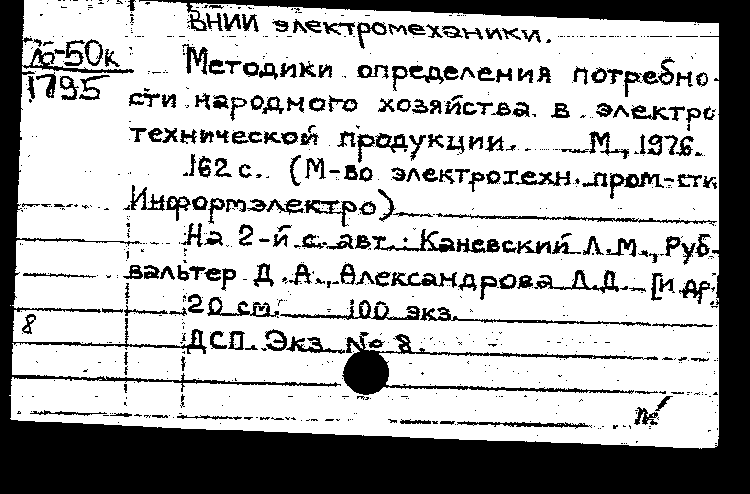 ВНИИ электромеханики.
Методики определения потребно-
сти народного хозяйства в электро
технической продукции. М., 1976.
162 с. (М-во электротехн. пром-сти
Информэлектро)
На 2-й с. авт.: Каневский Л.М., Руб-
вальтер Д.А., Александрова Л.Д. [и др.]
20 см. 100 экз.
ДСП. Экз. № 8.
-50к
1795
8